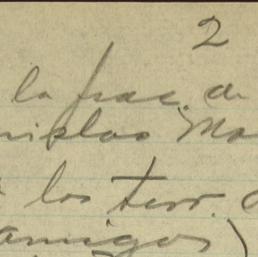 2
la frac. de
nislao Mo
los terr.
amigos)